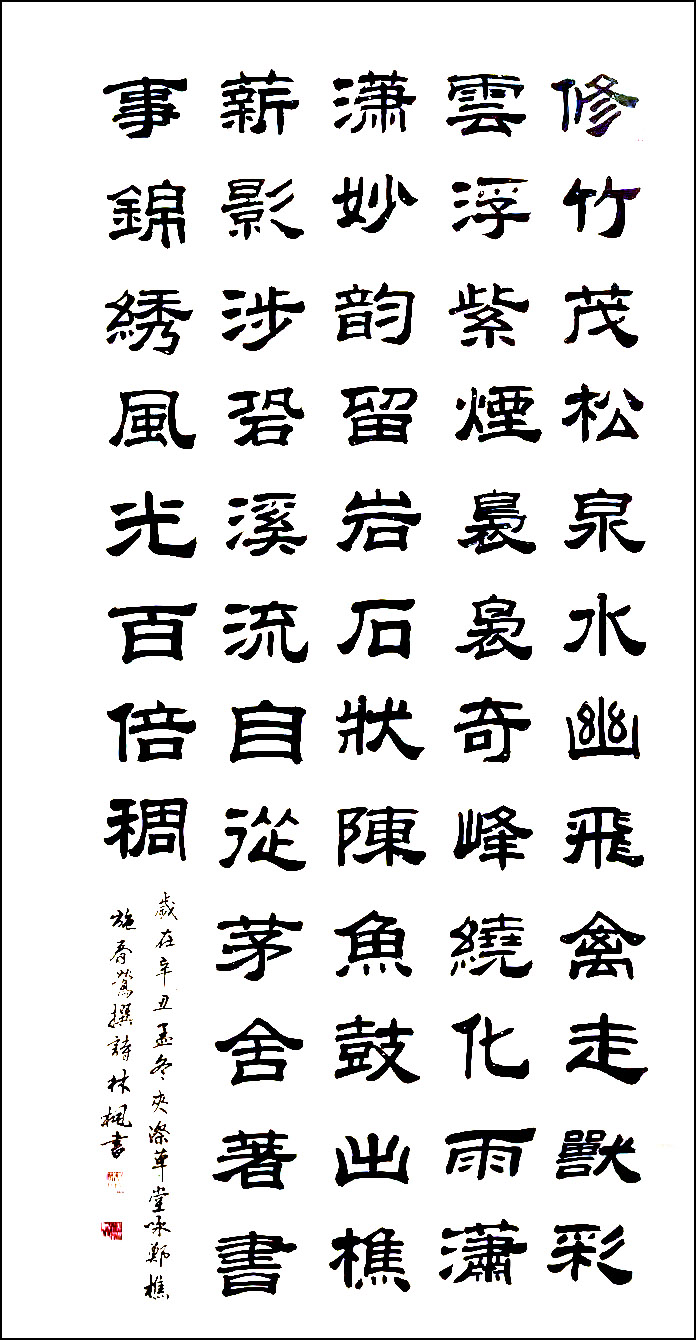 修竹茂松泉水幽飛禽走獸彩
雲浮紫煙裊裊奇峰繞化雨瀟
潇妙韵留岩石狀陳魚鼓出樵
薪影涉溪流自從茅舍著書
事錦綉風光百倍稠
歲在辛丑孟冬夾漈草堂咏鄭樵
施春鶯撰詩林楓書